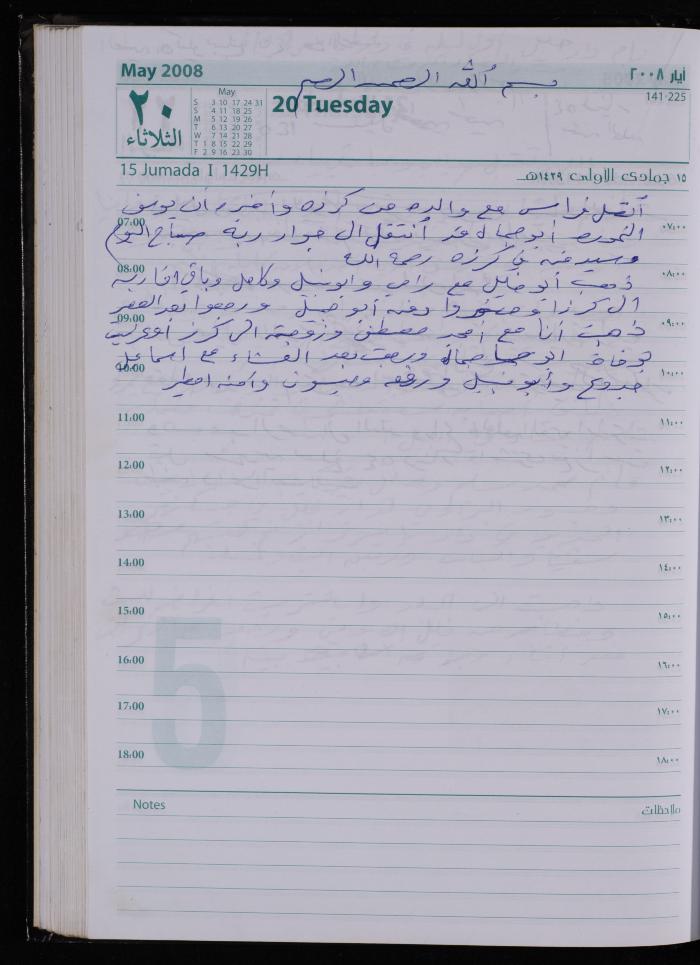 May 2008
أيار ٢٠٠٨
بسم الله الرحمن الرحيم
٢٠
الثلاثاء
May
S 3 10 17 24 31
S 4 11 18 25
M 5 12 19 26
T 6 13 20 27
W 7 14 21 28
T 1 8 15 22 29
F 2 9 16 23 30
20 Tuesday
141-225
15 Jumada I 1429H
١٥ جمادى الأولى ١٤٢٩هـ
أتصل فراس مع والده من كرزه وأخبره أن يوسف
07:00 ٠٧:٠٠
أبو جمال قد أنتقل الى جوار ربه صباح اليوم
وسيدفنه في كرزه رحمه الله
08:00 ٠٨:٠٠
ذهب أبو خليل مع رامي وابو نبيل وكامل وباقي اقاربه
الى كرزا وحضروا دفنه أبو خليل ورجعوا بعد العصر
09:00 ٠٩:٠٠
ذهبت أنا مع امجد مصطفى وزوجته الى كرزا
بوفاة ابو جمال ورجعت بعد العشاء مع اسماعيل
10:00 ١٠:٠٠
جدوع وأبو نبيل ورفقه وميسون وآمنه
11:00 ١١:٠٠
12:00 ١٢:٠٠
13:00 ١٣:٠٠
14:00 ١٤:٠٠
15:00 ١٥:٠٠
16:00 ١٦:٠٠
17:00 ١٧:٠٠
18:00 ١٨:٠٠
5
Notes
ملاحظات